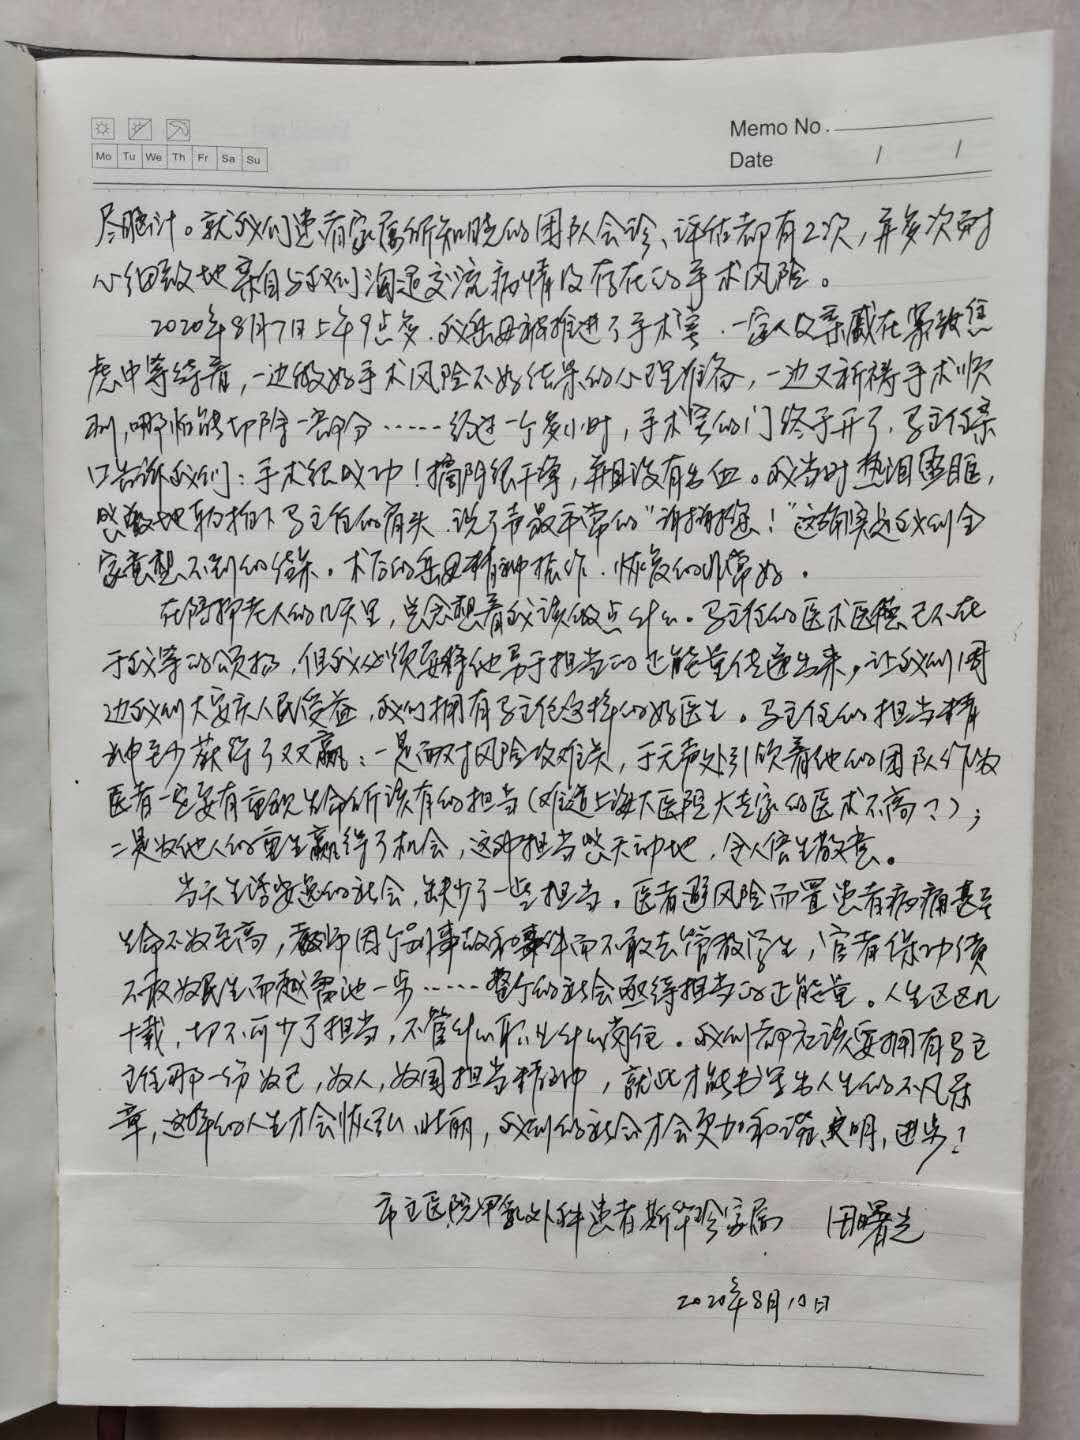 Memo No.
Date / /
Mo Tu We Th Fr Sa Su
尽胆汁。就我们患者家属所知晓的团队会诊、评估都有2次，并多次耐
心细致地亲自与我们沟通交流病情及存在的手术风险。
2020年8月7日上午9点多，我岳母被推进了手术室，一家人及亲戚在紧张焦
虑中等待着，一边做好手术风险不好结果的心理准备，一边又祈祷手术顺
利，哪怕能切除一部分……经过一个多小时，手术室的门终于开了，马主任亲
口告诉我们：手术很成功！摘除很干净，并且没有出血。我当时热泪盈眶，
感激地轻拍下马主任的肩头，说了声最平常的“谢谢您！”这确实是我们全
家意想不到的结果。术后的岳母精神振作，恢复的非常好。
在陪护老人的几天里，总念想着我该做点什么。马主任的医术医德已不在
于我等的颂扬，但我必须要将他勇于担当的正能量传递出来，让我们周
边我们大安庆人民受益，我们拥有马主任这样的好医生。马主任的担当精
神至少获得了双赢：一是面对风险攻难关，于无声处引领着他的团队作为
医者一定要有重视生命所该有的担当（难道上海大医院大专家的医术不高？）；
二是为他人的重生赢得了机会，这种担当感天动地，令人倍生敬意。
当天生活安逸的社会，缺少了一些担当。医者避风险而置患者病痛甚至
生命不为至高，教师因个别事故和事件而不敢去管教学生，官者保功绩
不敢为民生而越雷池一步……整个的社会亟待担当的正能量。人生区区几
十载，切不可少了担当，不管什么职业什么岗位。我们都应该要拥有马主
主任那一份为己，为人，为国担当精神，就此才能书写出人生的不凡乐
章，这样的人生才会恢弘、壮丽，我们的社会才会更加和谐、文明、进步！
市立医院甲乳外科患者斯华珍家属 田曙光
2020年8月10日